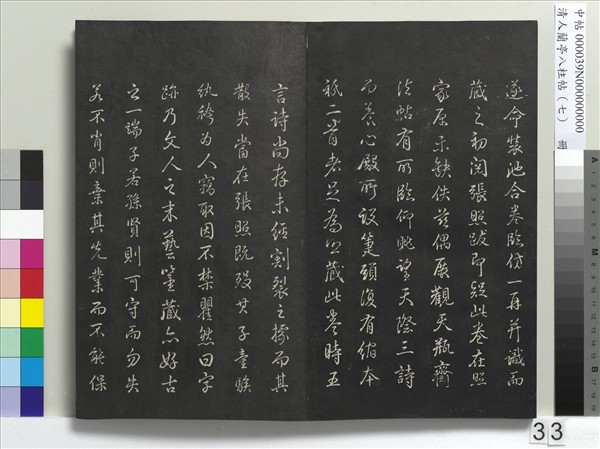 遂命裝池合卷臨仿一再并識而
藏之初閱張照跋即疑此卷在照
家原未缺佚茲偶展觀天瓶齋
法帖有所臨仰眺望天際三詩
而養心殿所設箑頭復有縮本
秖二首者足為此藏此卷時五
言詩尚存未經割裂之據而其
散失當在張照既歿其子童騃
紈袴為人竊取因不禁瞿然曰字
跡乃文人之末藝鑒藏亦好古
之一端子若孫賢則可守而勿失
若不肖則棄其先業而不能保
中帖 000039N000000000
清人蘭亭八柱帖（七）
冊
33